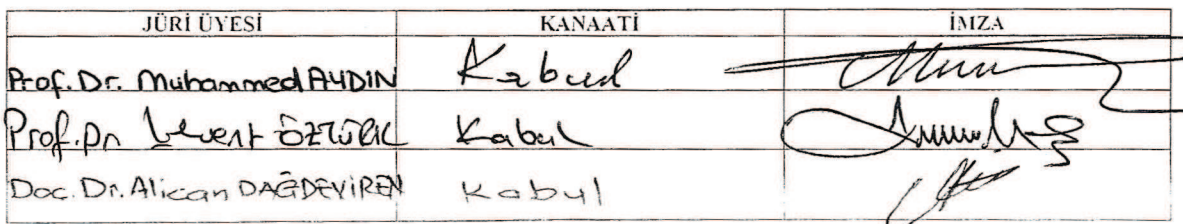 JÜRİ ÜYESİ KANAATİ İMZA
Prof. Dr. Muhammed AYDIN Kabul
Prof. Dr. Levent ÖZTÜRK Kabul
Doc. Dr. Alican DAĞDEVİREN Kabul